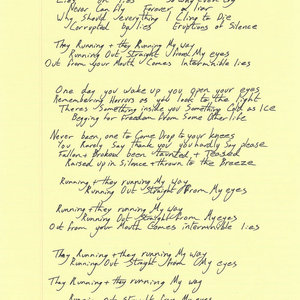 Lies on lies
Never Can fly Forever a liar
Why Should everything I Cling to Die
Corrupted by lies Eruptions of Silence
They Running + they Running My way
Running Out Straight From My eyes
Out from your Mouth Comes Interminible lies
One day you wake up you open your eyes
Remembering Horrors as you look to the light
Theres Something inside you Something Cold as Ice
Begging for Freedom From Some Other life
Never been, one to Come Drop to your knees
You Rarely Say thank you you hardly Say please
Fallen + Broken been Taunted + Teased
Raised up in Silence + thrown to the breeze
Running + they running My way
Running Out Straight From My eyes
Running + they running My way
Running Out Straight From My eyes
Out from your Mouth Comes interminible lies
They Running + they running My way
Running Out Straight from My eyes
They Running + they running My way
Running out Straight from My eyes